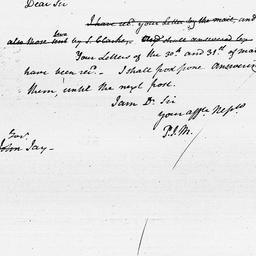 Dear Sir
I have recd. your letter by the mail, and
also those sent by S. Clarke,
Your Letters of the 30th. and 31st. of
have been recd. - I shall postpone answering
them, until the next post.
I am Dr. Sir
your affte. Neph.
P. J. M.
Govr.
John Jay -